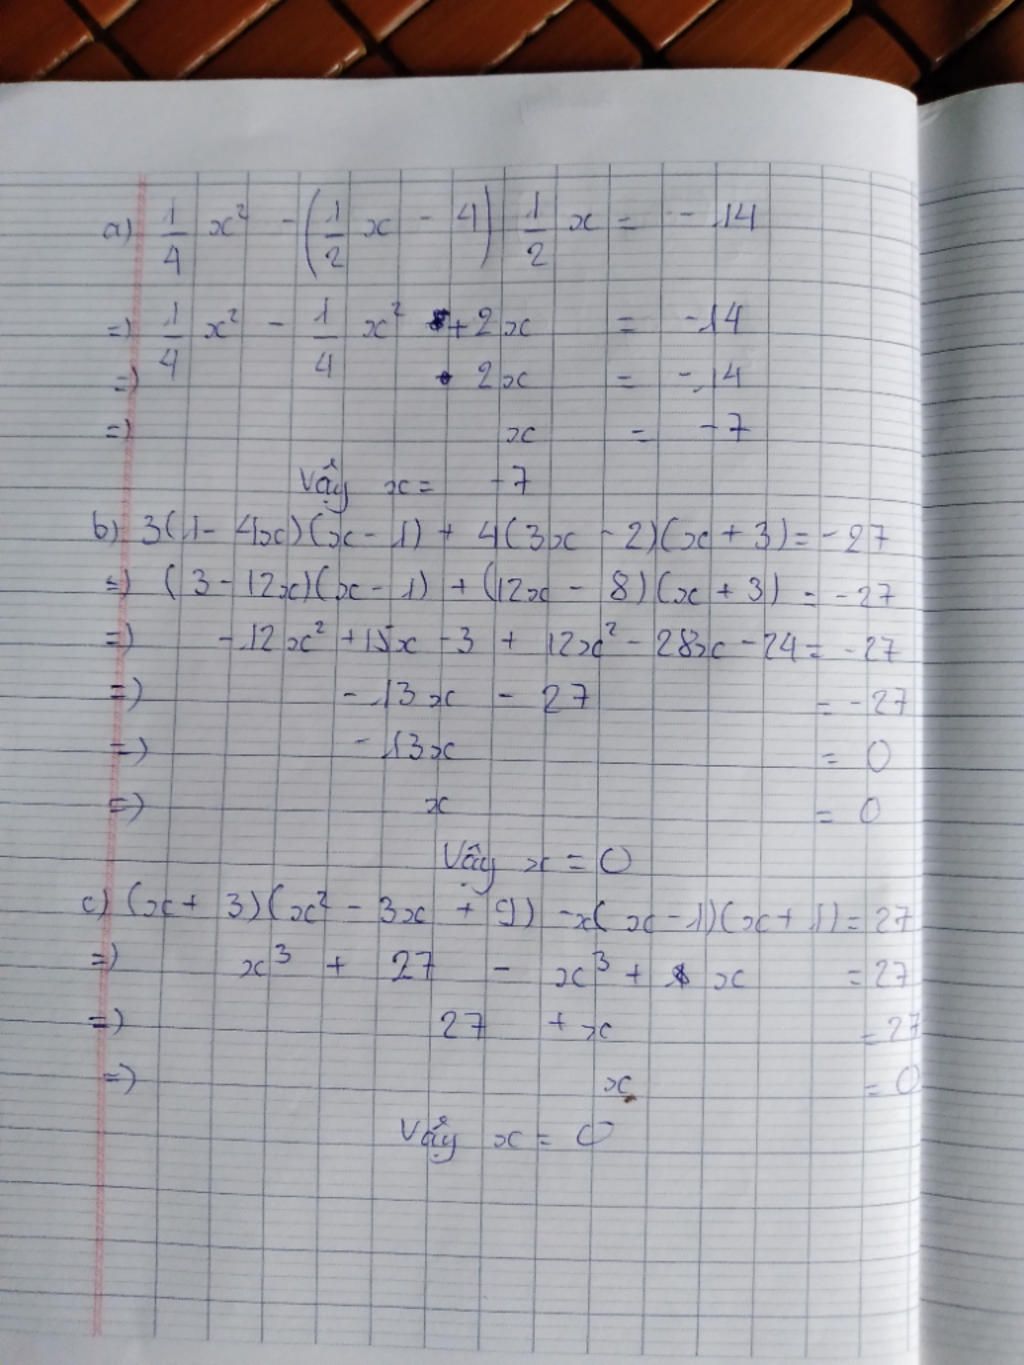 a) 1/4 x² - (1/2 x - 4) 1/2 x = - 14
=) 1/4 x² - 1/4 x² + 2x = -14
=) 2x = -14
=) x = -7
Vậy x = -7
b) 3(1 - 4x)(x - 1) + 4(3x - 2)(x + 3) = -27
=) (3 - 12x)(x - 1) + (12x - 8)(x + 3) = -27
=) -12x² + 15x - 3 + 12x² - 28x - 24 = -27
=) -13x - 27 = -27
=) -13x = 0
=) x = 0
Vậy x = 0
c) (x + 3)(x² - 3x + 9) - x(x - 1)(x + 1) = 27
=) x³ + 27 - x³ + x = 27
=) 27 + x = 27
=) x = 0
Vậy x = 0